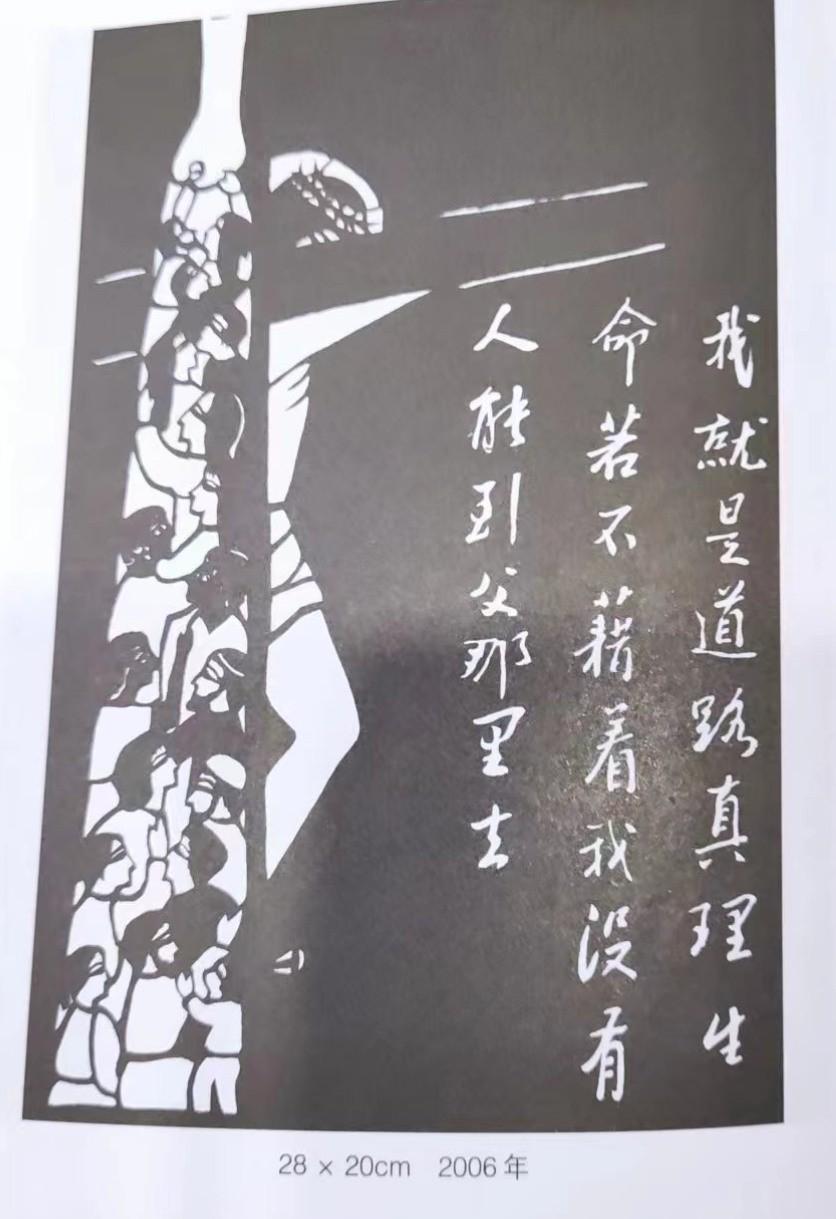 我就是道路真理生
命若不藉着我没有
人能到父那里去
28 × 20cm 2006年